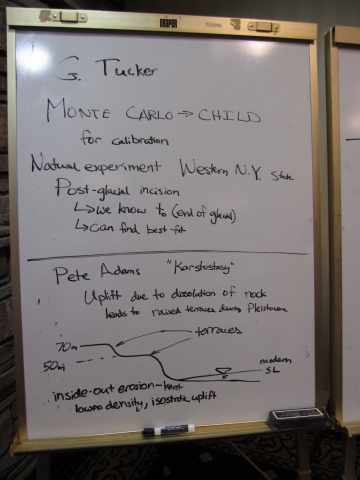 DRAPER
G. Tucker
MONTE CARLO → CHILD
for calibration
Natural experiment Western N.Y. State
Post-glacial incision
↳ We know to (end of glacial)
↳ can find best-fit
Pete Adams "Karstostasy"
Uplift due to dissolution of rock
leads to raised terraces during Pleistocene
terraces
70m
50m
modern
SL
inside-out erosion-karst
lowers density, isostatic uplift